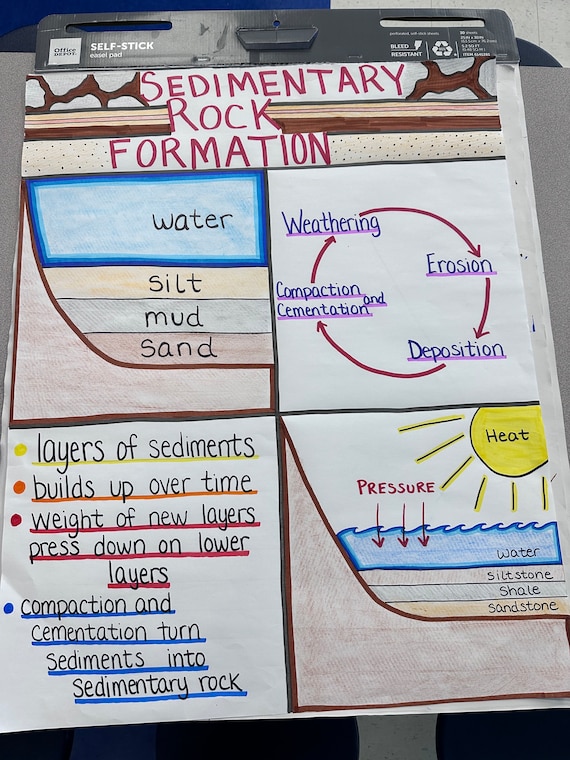 Office
DEPOT
SELF-STICK
easel pad
perforated, self-stick sheets
BLEED
RESISTANT
30 sheets
SEDIMENTARY
ROCK
FORMATION
water
silt
mud
sand
Weathering
Erosion
Deposition
Compaction and
Cementation
layers of sediments
builds up over time
weight of new layers
press down on lower
layers
compaction and
Cementation turn
Sediments into
Sedimentary rock
Heat
PRESSURE
water
siltstone
shale
sandstone